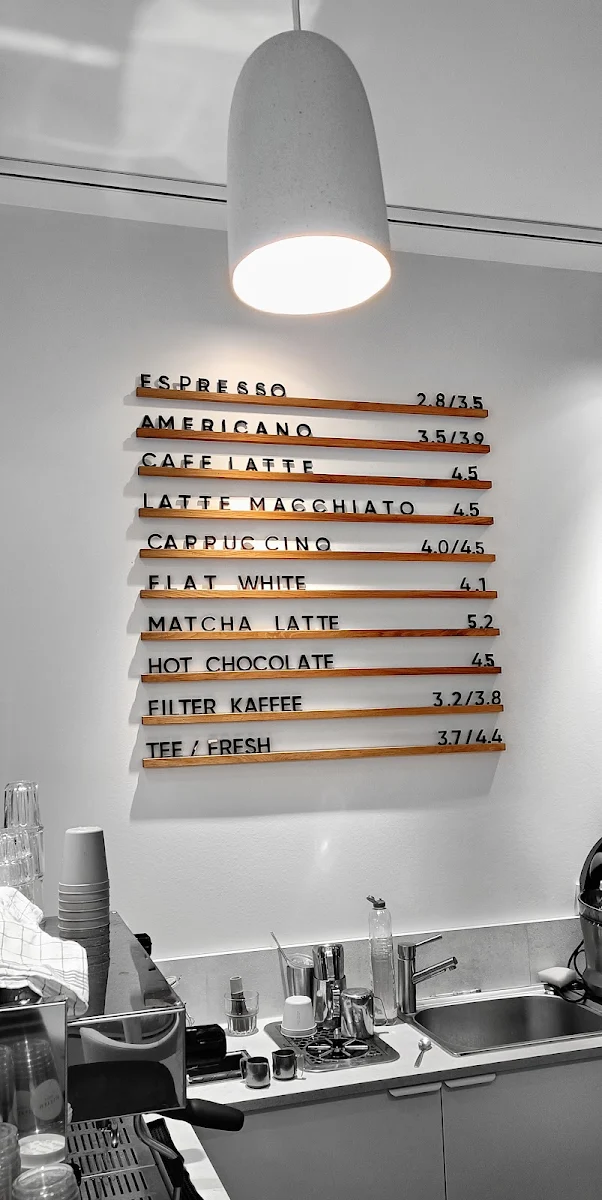 ESPRESSO 2.8/3.5
AMERICANO 3.5/3.9
CAFE LATTE 4.5
LATTE MACCHIATO 4.5
CAPPUCCINO 4.0/4.5
FLAT WHITE 4.1
MATCHA LATTE 5.2
HOT CHOCOLATE 4.5
FILTER KAFFEE 3.2/3.8
TEE / FRESH 3.7/4.4